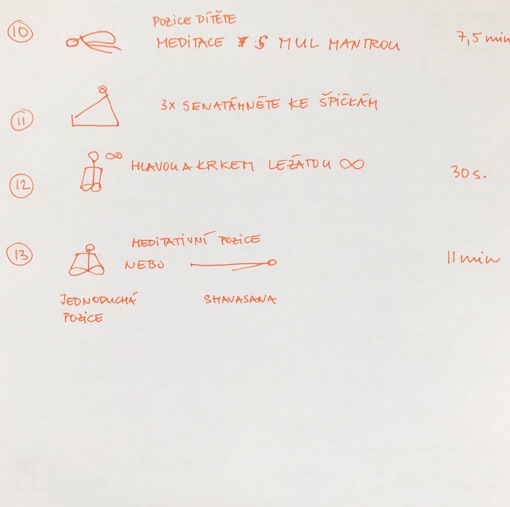 10 POZICE DÍTĚTE
MEDITACE S MUL MANTROU 7,5 min
11 3X SENATÁHNĚTE KE ŠPIČKÁM
12 ∞ HLAVOU A KRKEM LEŽATOU ∞ 30 s.
13 MEDITATIVNÍ POZICE
NEBO 11 min
JEDNODUCHÁ SHAVASANA
POZICE